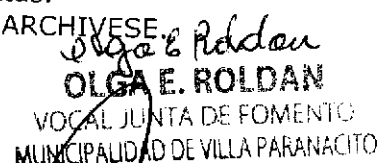 tas.
ARCHIVESE.
Olga E Roldan
OLGA E. ROLDAN
VOCAL JUNTA DE FOMENTO
MUNICIPALIDAD DE VILLA PARANACITO